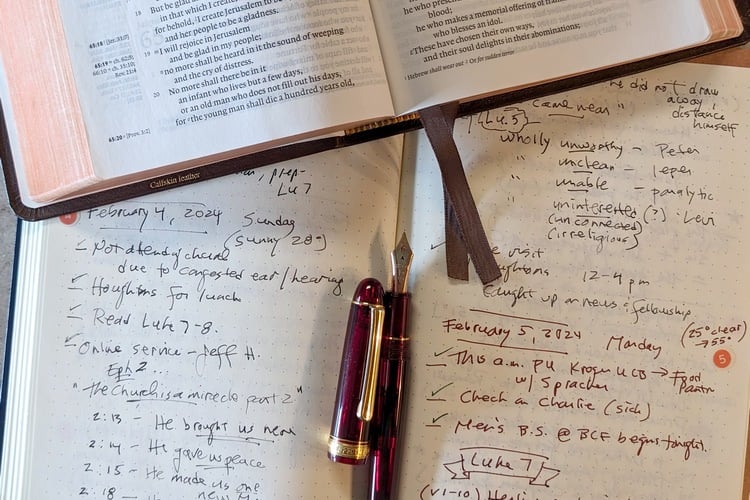 in that which I create;
for behold, I create Jerusalem to be
and her people to be a gladness.
19 I will rejoice in Jerusalem
and be glad in my people;
no more shall be heard in it the sound of weeping
and the cry of distress.
20 No more shall there be in it
an infant who lives but a few days,
or an old man who does not fill out his days,
for the young man shall die a hundred years old,
65:20
blood;
he who makes a memorial offering of
who blesses an idol.
These have chosen their own ways,
and their soul delights in their abominations;
Hebrew shall wear out
Calfskin leather
Lu 7
February 4, 2024 Sunday
(Sunny 28°)
Not attend church
due to congested ear/hearing
Houghtons for lunch
Read Luke 7-8.
Online service - Jeff H.
Eph 2...
"The Church is a miracle part 2"
2:13 - He brought us near
2:14 - He gave us peace
2:15 - He made us one
2:18
he did not draw
away,
distance
himself
came near "
Lu. 5
wholly unworthy - Peter
" unclean - leper
" unable - paralytic
" uninterested (?) : Levi
(unconnected)
(irreligious)
visit
12-4 pm
Caught up on news & fellowship
February 5, 2024 Monday
(25° clear)
→ 55°
5
This a.m. PU Kroger UCB → Food
Pantry
w/ Spracher
Check on Charlie (sick)
Men's B.S. @ BCF begins tonight.
Luke 7
(v1-10)